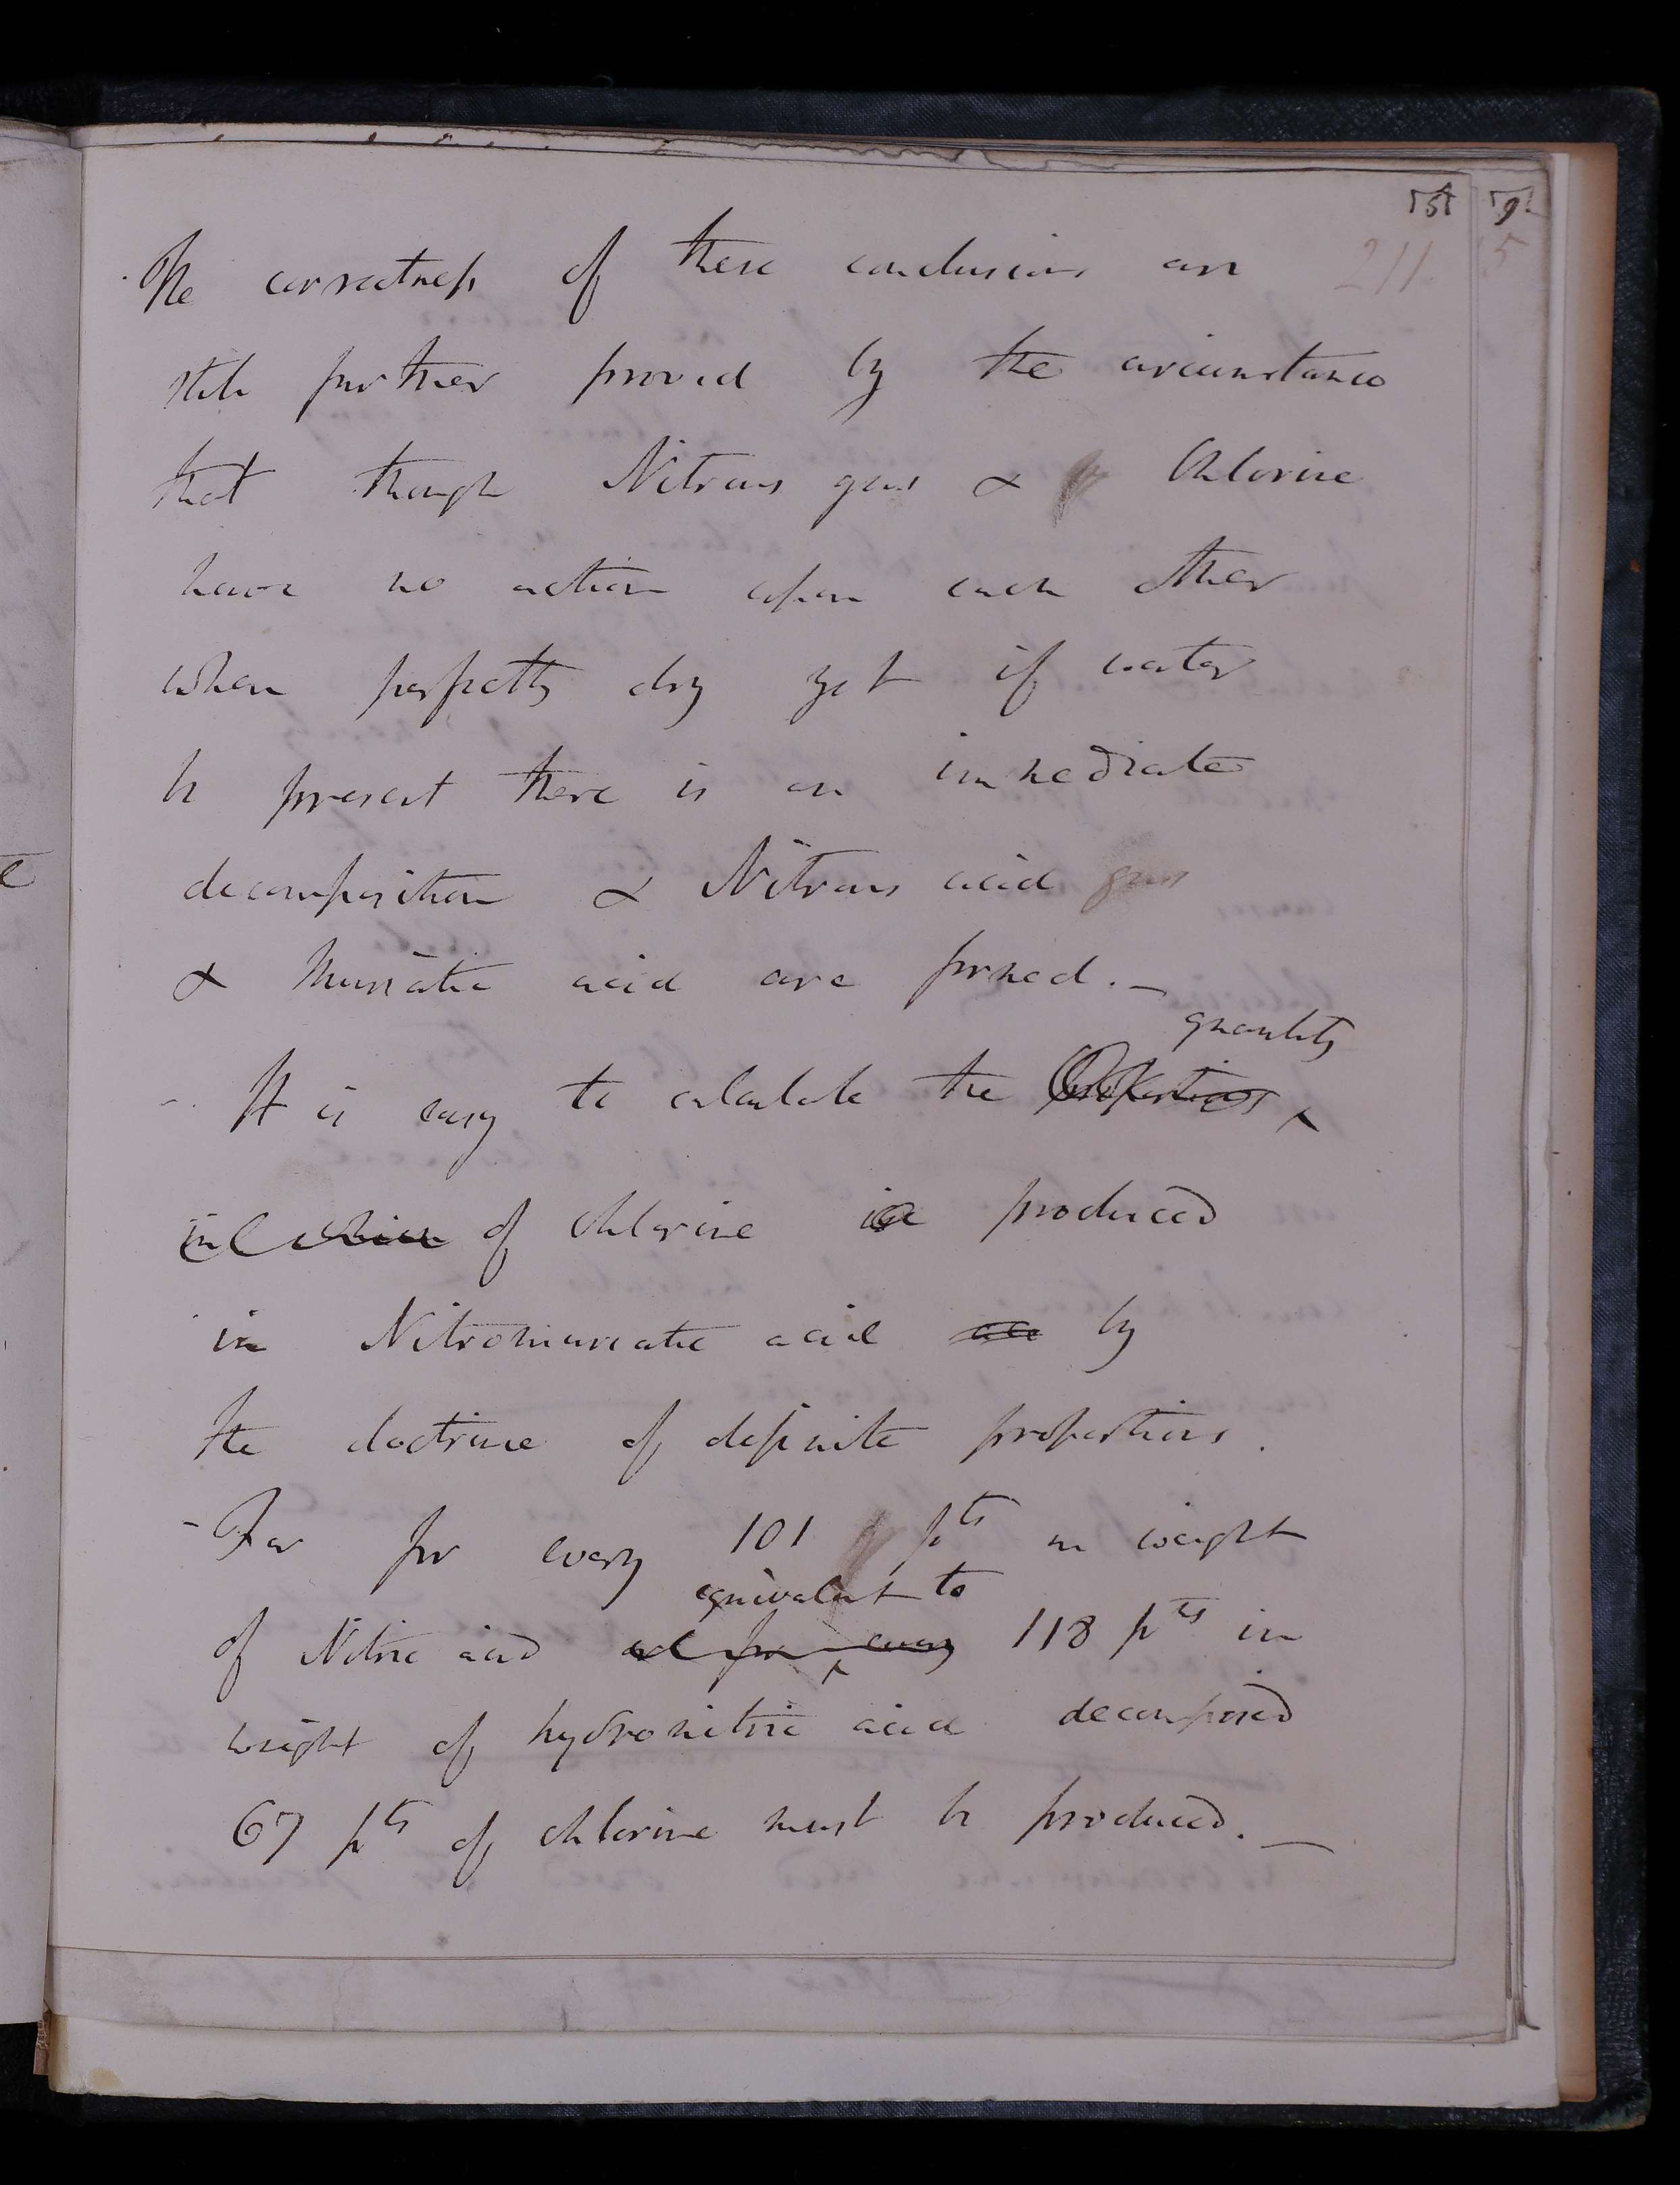 211.
The correctness of these conclusions are
still further proved by the circumstance
that though Nitrous gas & Chlorine
have no action upon each other
when perfectly dry yet if water
be present there is an immediate
decomposition & Nitrous acid gas
& Muriatic acid are formed. —
quantity
It is easy to calculate the proportions ^
in which of chlorine produced
in Nitromuriatic acid by
the doctrine of definite proportions.
- For for every 101 pts in weight
equivalent to
of Nitric acid and for every ^ 118 pts in
weight of hydronitric acid decomposed
67 pts of chlorine must be produced. —